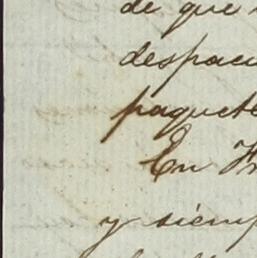 de que
despaci
paquete
En Fr
y siemp